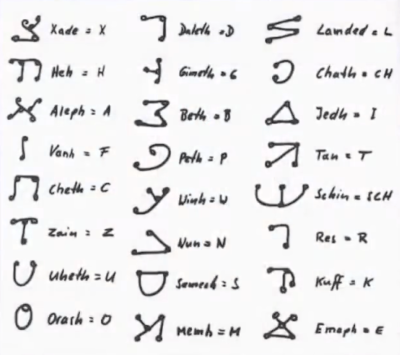 Xade = X
Heh = H
Aleph = A
Vanh = F
Cheth = C
Zain = Z
Uheth = U
Orash = O
Daleth = D
Gimeth = G
Beth = B
Peth = P
Vinh = W
Nun = N
Samech = S
Memh = M
Lamded = L
Chath = CH
Jedh = I
Tan = T
Schin = SCH
Res = R
Kuff = K
Emaph = E